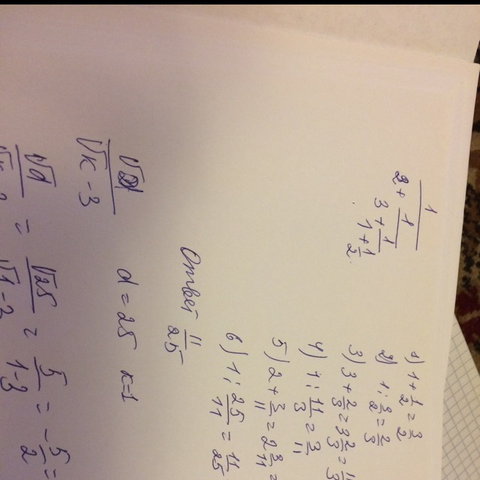 1/(2+1/(3+1/(1+1/2)))
1) 1+1/2=3/2
2) 1:3/2=2/3
3) 3+2/3=3 2/3=11/3
4) 1:11/3=3/11
5) 2+3/11=2 3/11=
6) 1:25/11=11/25
Ответ 11/25
√d/(√k-3) d=25 k=1
√d/(√k-3)=√25/(√1-3)=5/(1-3)=-5/2=